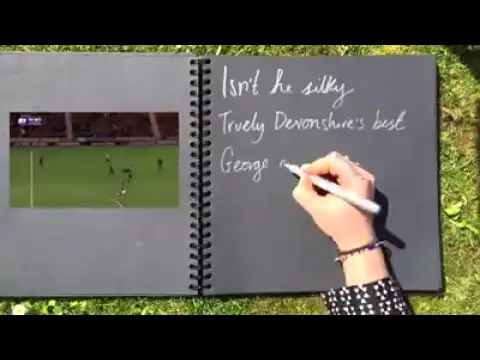 Isn't he silky
Truely Devonshire's best
George